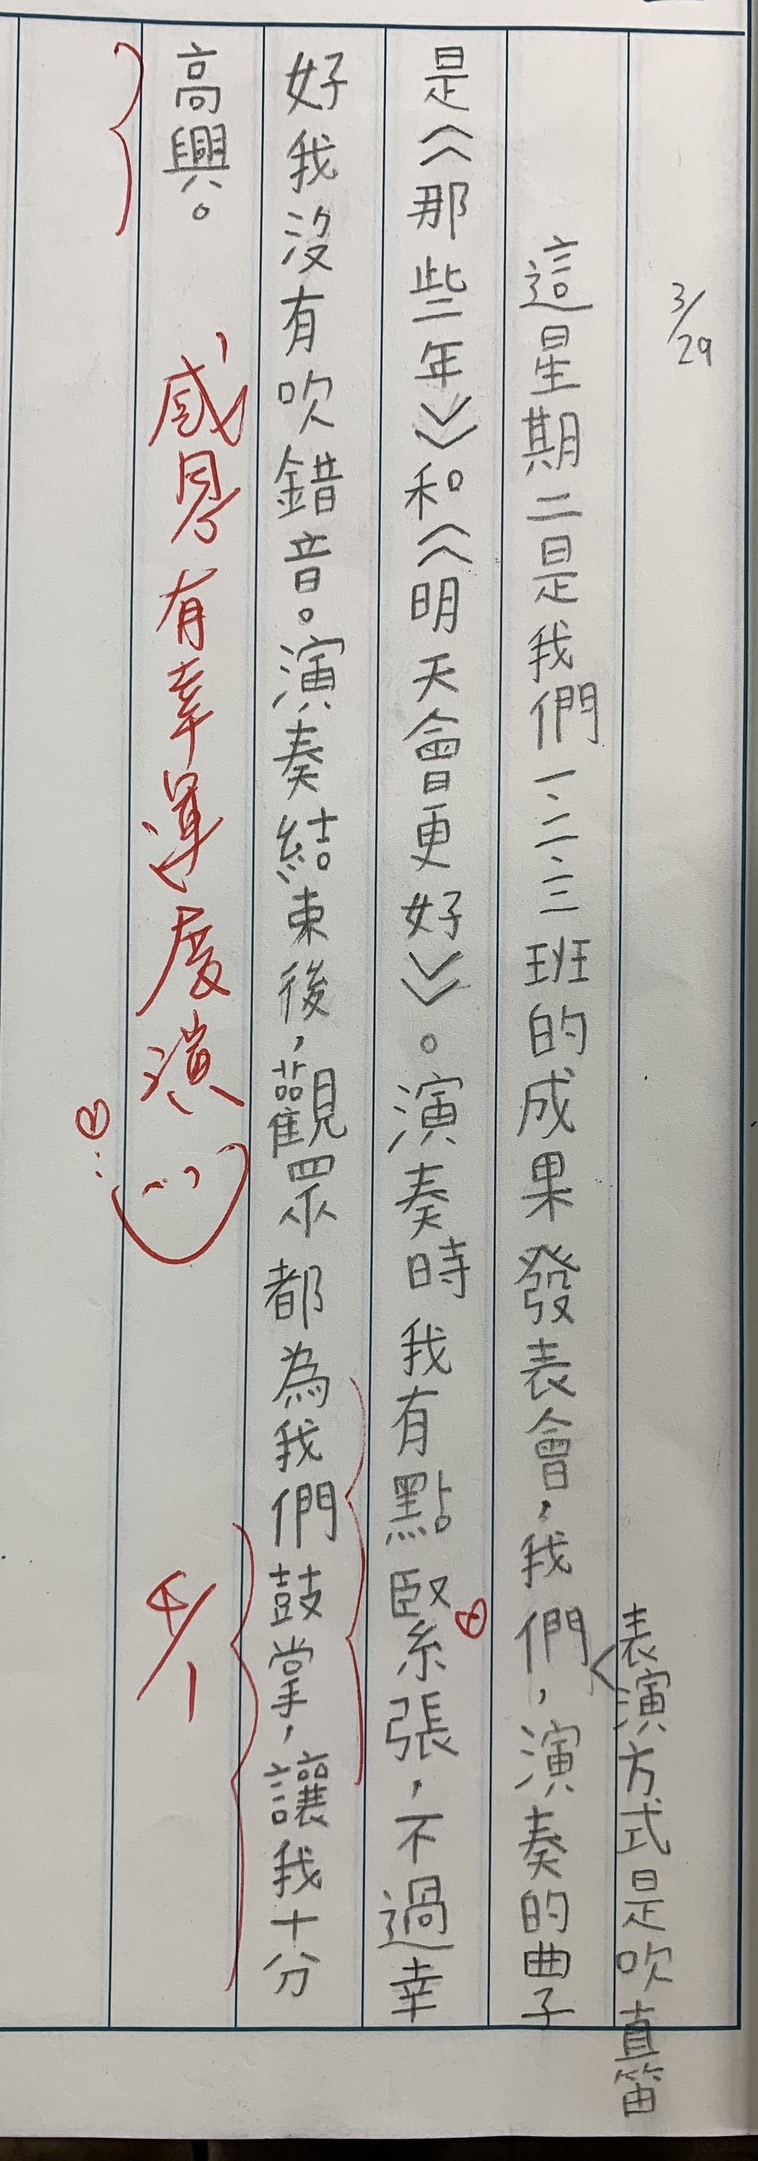 3/29
這星期二是我們一、二、三班的成果發表會,我們,演奏的曲子
表演方式是吹直笛
是《那些年》和《明天會更好》。演奏時我有點緊張,不過幸
好我沒有吹錯音。演奏結束後,觀眾都為我們鼓掌,讓我十分
高興。
有幸運
4/1